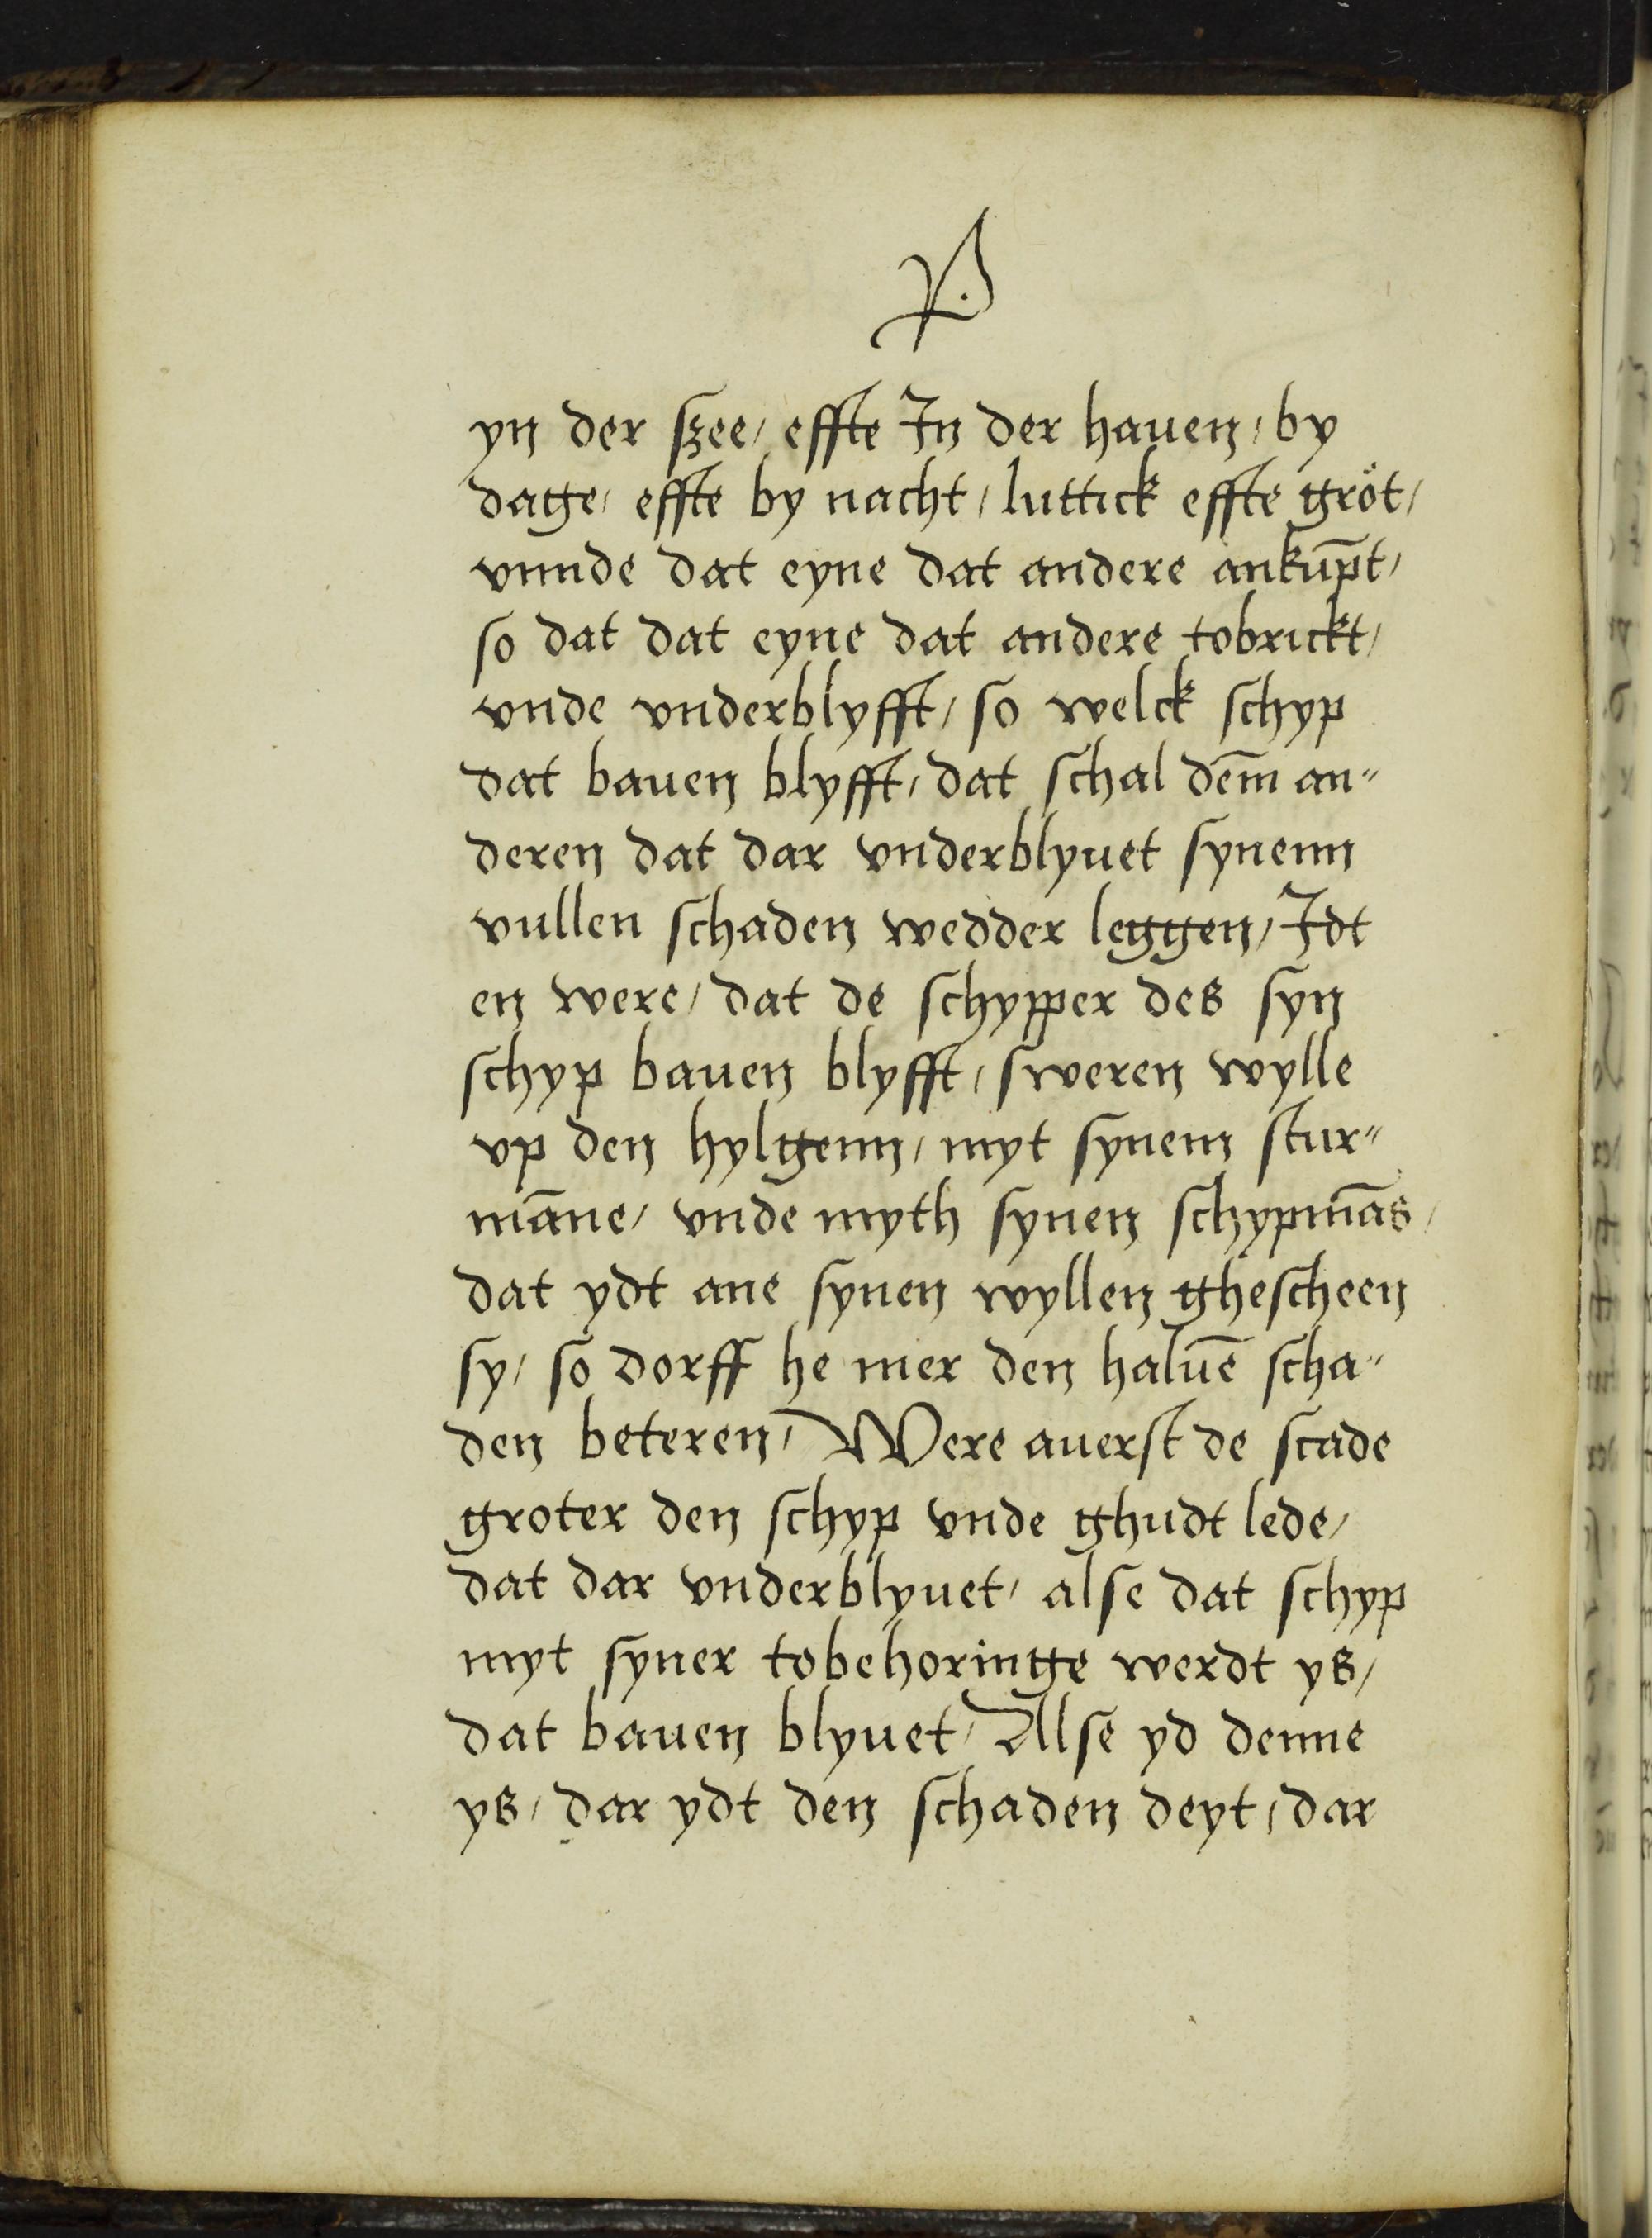 P.
yn der szee/ effte In der hauen/ by
dage/ effte by nacht/ luttick effte gröt/
vnnde dat eyne dat andere ankūpt/
so dat dat eyne dat andere tobrickt/
vnde vnderblyfft/ so welck schyp
dat bauen blyfft/ dat schal dem̄ an"
deren dat dar vnderblyuet synenn
vullen schaden wedder leggen/ Idt
en were/ dat de schypper des syn
schyp bauen blyfft/ sweren wylle
vp den hylgenn/ myt synem stur"
māne/ vnde myth synen schypmās/
dat ydt ane synen wyllen ghescheen
sy/ so dorff he mer den haluē scha"
den beteren/ Were auerst de scade
groter den schyp vnde ghudt lede/
dat dar vnderblyuet/ alse dat schyp
myt syner tobehoringe werdt ys/
dat bauen blyuet/ Alse yd denne
ys/ dar ydt den schaden deyt/ dar